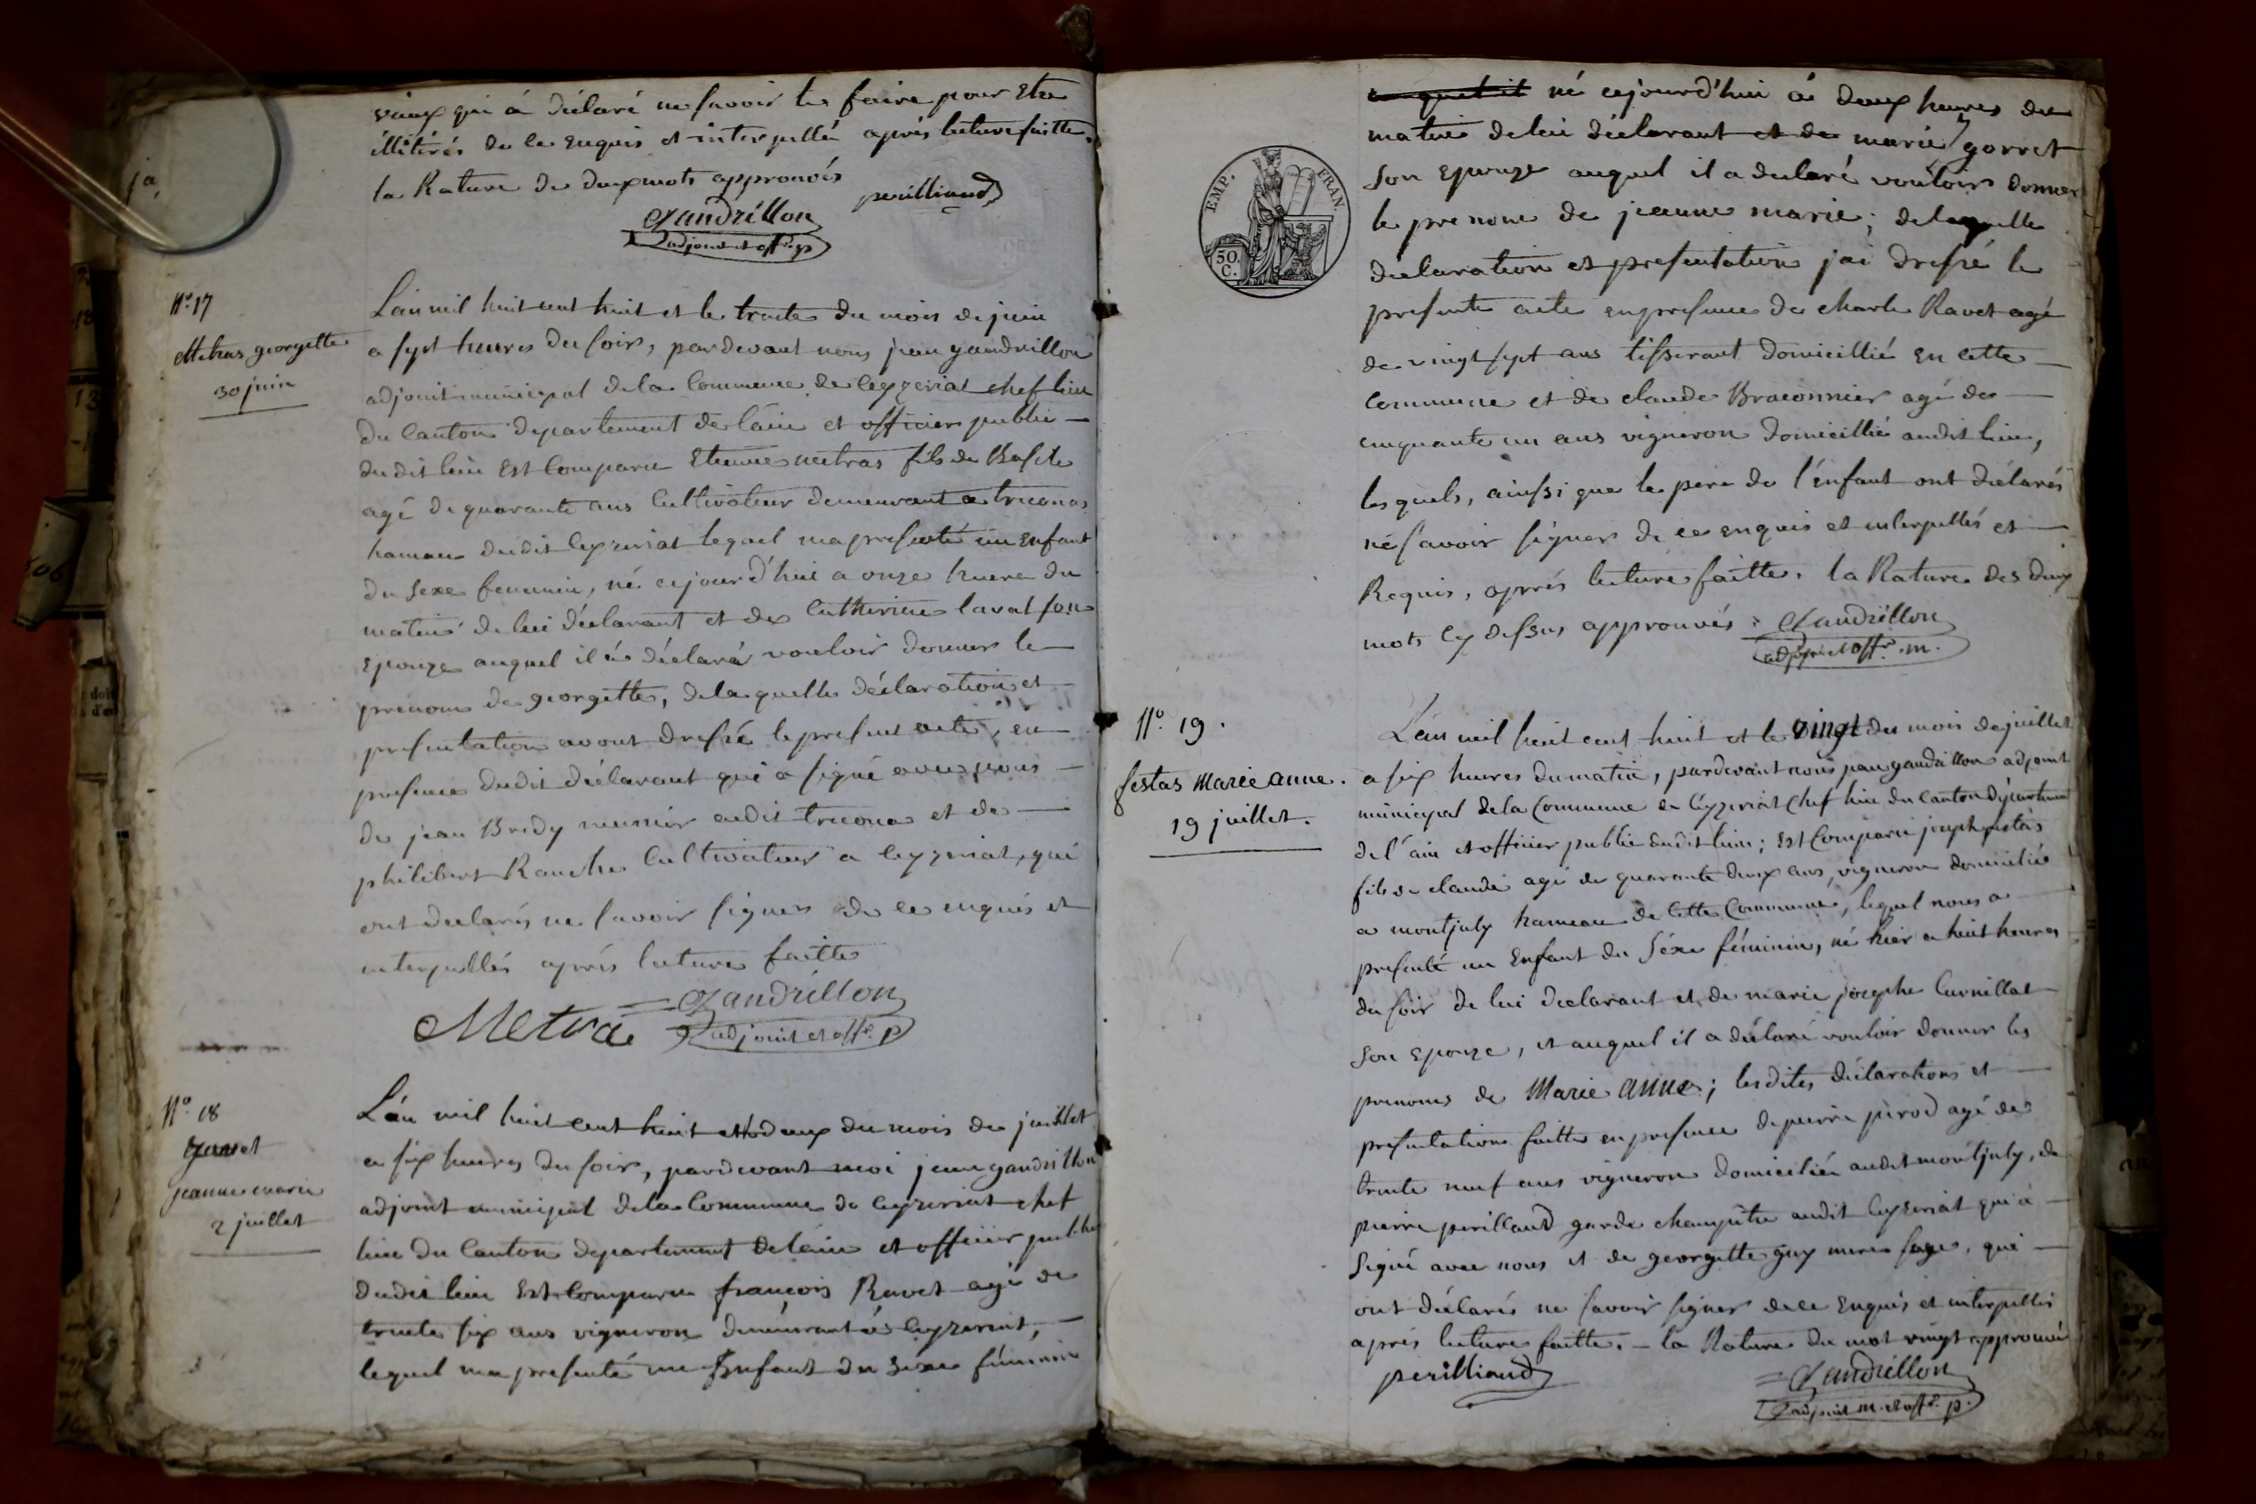 vieux qui à déclaré ne savoir le faire pour Etre
illitérés de ce enquis et interpellé après lecture faitte.
la Rature de deux mots approuvés
perilliaud
Gandrillon
adjoint et offr. p
N° 17
Metras georgette
30 juin
L'an mil huit cent huit et le trente du mois de juin
a sept heures du soir, pardevant nous jean gandrillon
adjoint municipal de la Commune de Ceyzeriat chef lieu
du Canton departement de l'ain et officier public
dudit lieu Est Comparu Etienne metras fils de
agé de quarante ans Cultivateur demeurant a treconas
hameau dudit Ceyzeriat lequel ma presenté un Enfant
du sexe feminin, né cejourd'hui a onze heure du
matin de lui déclarant et de Catherine lavat son
Epouze auquel il a déclaré vouloir donner le
prénom de georgette, de laquelle déclaration et
presentation avont dressé le present acte, en
presence dudit déclarant qui a signé avec nous
de jean Bridy meunier audit treconas et de
philibert Rauche Cultivateur a Ceyzeriat, qui
ont declarés ne savoir signer de ce enquis et
interpellés après lecture faitte
Metra
Gandrillon
adjoint et offr. p
N° 18
Ravet
jeanne marie
2 juillet
L'an mil huit cent huit et le deux du mois de juillet
a six heures du soir, pardevant moi jean gandrillon
adjoint municipal de la Commune de Ceyzeriat chef
lieu du Canton departement de l'ain et officier public
dudit lieu Est Comparu françois Ravet agé de
trente six ans vigneron demeurant à Ceyzeriat,
lequel ma presenté un Enfant du sexe féminin
EMP. FRAN.
50 C.
né cejourd'hui à deux heures du
matin de lui déclarant et de marie gorret
son Epouze auquel il a declaré vouloir donner
le prenom de jeanne marie; de laquelle
déclaration et presentation jai dressé le
presente acte en presence de charle Ravet agé
de vingt sept ans tisserant domicillié en cette
Commune et de claude Braconnier agé de
cinquante un ans vigneron domicillié audit lieu,
lesquels, ainssi que le pere de l'énfant ont déclarés
né savoir signer de ce enquis et interpellés et
Requis, après lecture faitte. la Rature des deux
mots Cy dessus approuvés : Gandrillon
adjoint et offr. m.
N° 19.
festas Marie anne.
19 juillet.
L'an mil huit cent huit et le vingt du mois de juillet
a six heures du matin, pardevant nous jean gandrillon adjoint
municipal de la Commune de Ceyzeriat chef lieu du canton département
de l'ain et officier public dudit lieu; Est Comparu joseph festas
fils de claude agé de quarante deux ans, vigneron domicilié
a montjuly hameau de Cette Commune, lequel nous a
presenté un Enfant du Séxe féminin, né hier a huit heures
du soir de lui declarant et de marie josephe Curnillat
son Epouze, et auquel il a déclaré vouloir donner les
prenoms de Marie anne; les dites déclarations et
presentations faitte en presence de pierre pirod agé de
trente neuf ans vigneron domicilié audit montjuly, de
pierre perillaud garde champêtre audit Ceyzeriat qui a
signé avec nous et de georgette guy mere sage, qui
ont déclarés ne savoir signer de ce Enquis et interpellés
après lecture faitte. - la Rature du mot vingt approuvé
perilliaud
Gandrillon
adjoint m. et offr. p.